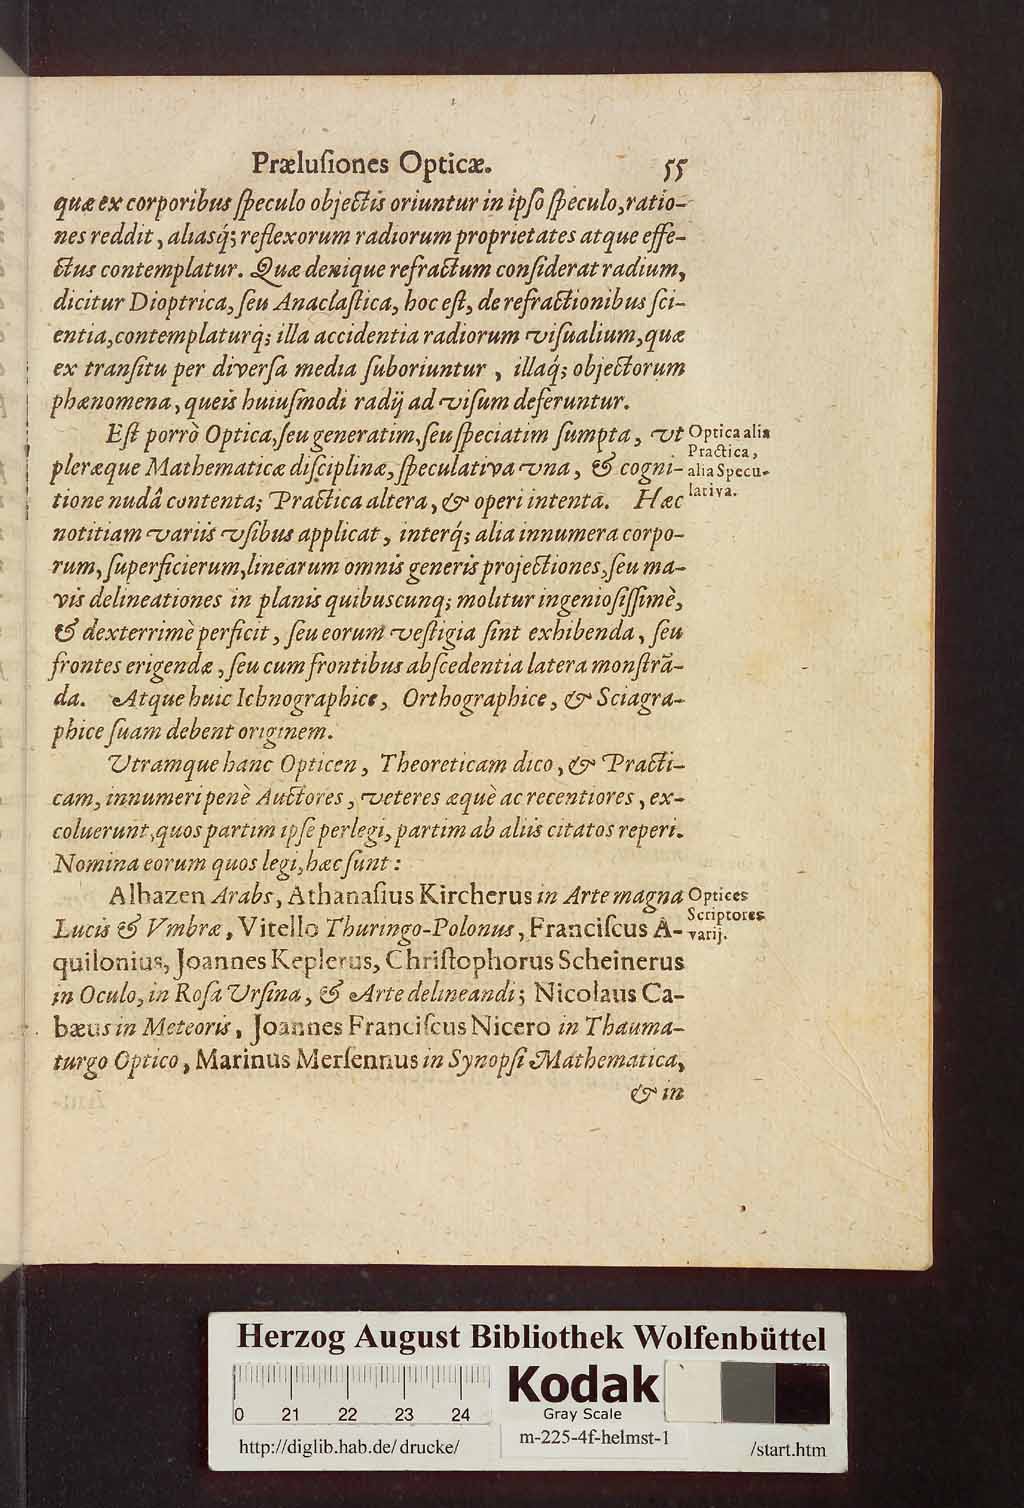 Prælusiones Opticæ. 55
quæ ex corporibus ſpeculo objectis oriuntur in ipſo ſpeculo, ratio-
nes reddit, aliasq́; reflexorum radiorum proprietates atque effe-
ctus contemplatur. Quæ denique refractum conſiderat radium,
dicitur Dioptrica, ſeu Anaclaſtica, hoc eſt, de refractionibus ſci-
entia, contemplaturq́; illa accidentia radiorum viſualium, quæ
ex tranſitu per diverſa media ſuboriuntur, illaq́; objectorum
phænomena, queis huiuſmodi radij ad viſum deferuntur.
Eſt porrò Optica, ſeu generatim, ſeu ſpeciatim ſumpta, vt
pleræque Mathematicæ diſciplinæ, ſpeculativa vna, & cogni-
tione nudâ contenta; Practica altera, & operi intenta. Hæc
notitiam variis vſibus applicat, interq́; alia innumera corpo-
rum, ſuperficierum, linearum omnis generis projectiones, ſeu ma-
vis delineationes in planis quibuscunq; molitur ingenioſiſſimè,
& dexterrimè perficit, ſeu eorum veſtigia ſint exhibenda, ſeu
frontes erigendæ, ſeu cum frontibus abſcedentia latera monſtrã-
da. Atque huic Ichnographice, Orthographice, & Sciagra-
phice ſuam debent originem.
Vtramque hanc Opticen, Theoreticam dico, & Practi-
cam, innumeri penè Auctores, veteres æquè ac recentiores, ex-
coluerunt, quos partim ipſe perlegi, partim ab aliis citatos reperi.
Nomina eorum quos legi, hæc ſunt:
Alhazen Arabs, Athanaſius Kircherus in Arte magna
Lucis & Vmbræ, Vitello Thuringo-Polonus, Franciſcus A-
quilonius, Joannes Keplerus, Chriſtophorus Scheinerus
in Oculo, in Roſa Vrſina, & Arte delineandi; Nicolaus Ca-
bæus in Meteoris, Joannes Franciſcus Nicero in Thauma-
turgo Optico, Marinus Merſennus in Synopſi Mathematica,
& in
Optica alia
Practica,
alia Specu-
lativa.
Optices
Scriptores
varij.
Herzog August Bibliothek Wolfenbüttel
0 21 22 23 24
Kodak
Gray Scale
http://diglib.hab.de/drucke/
m-225-4f-helmst-1
/start.htm